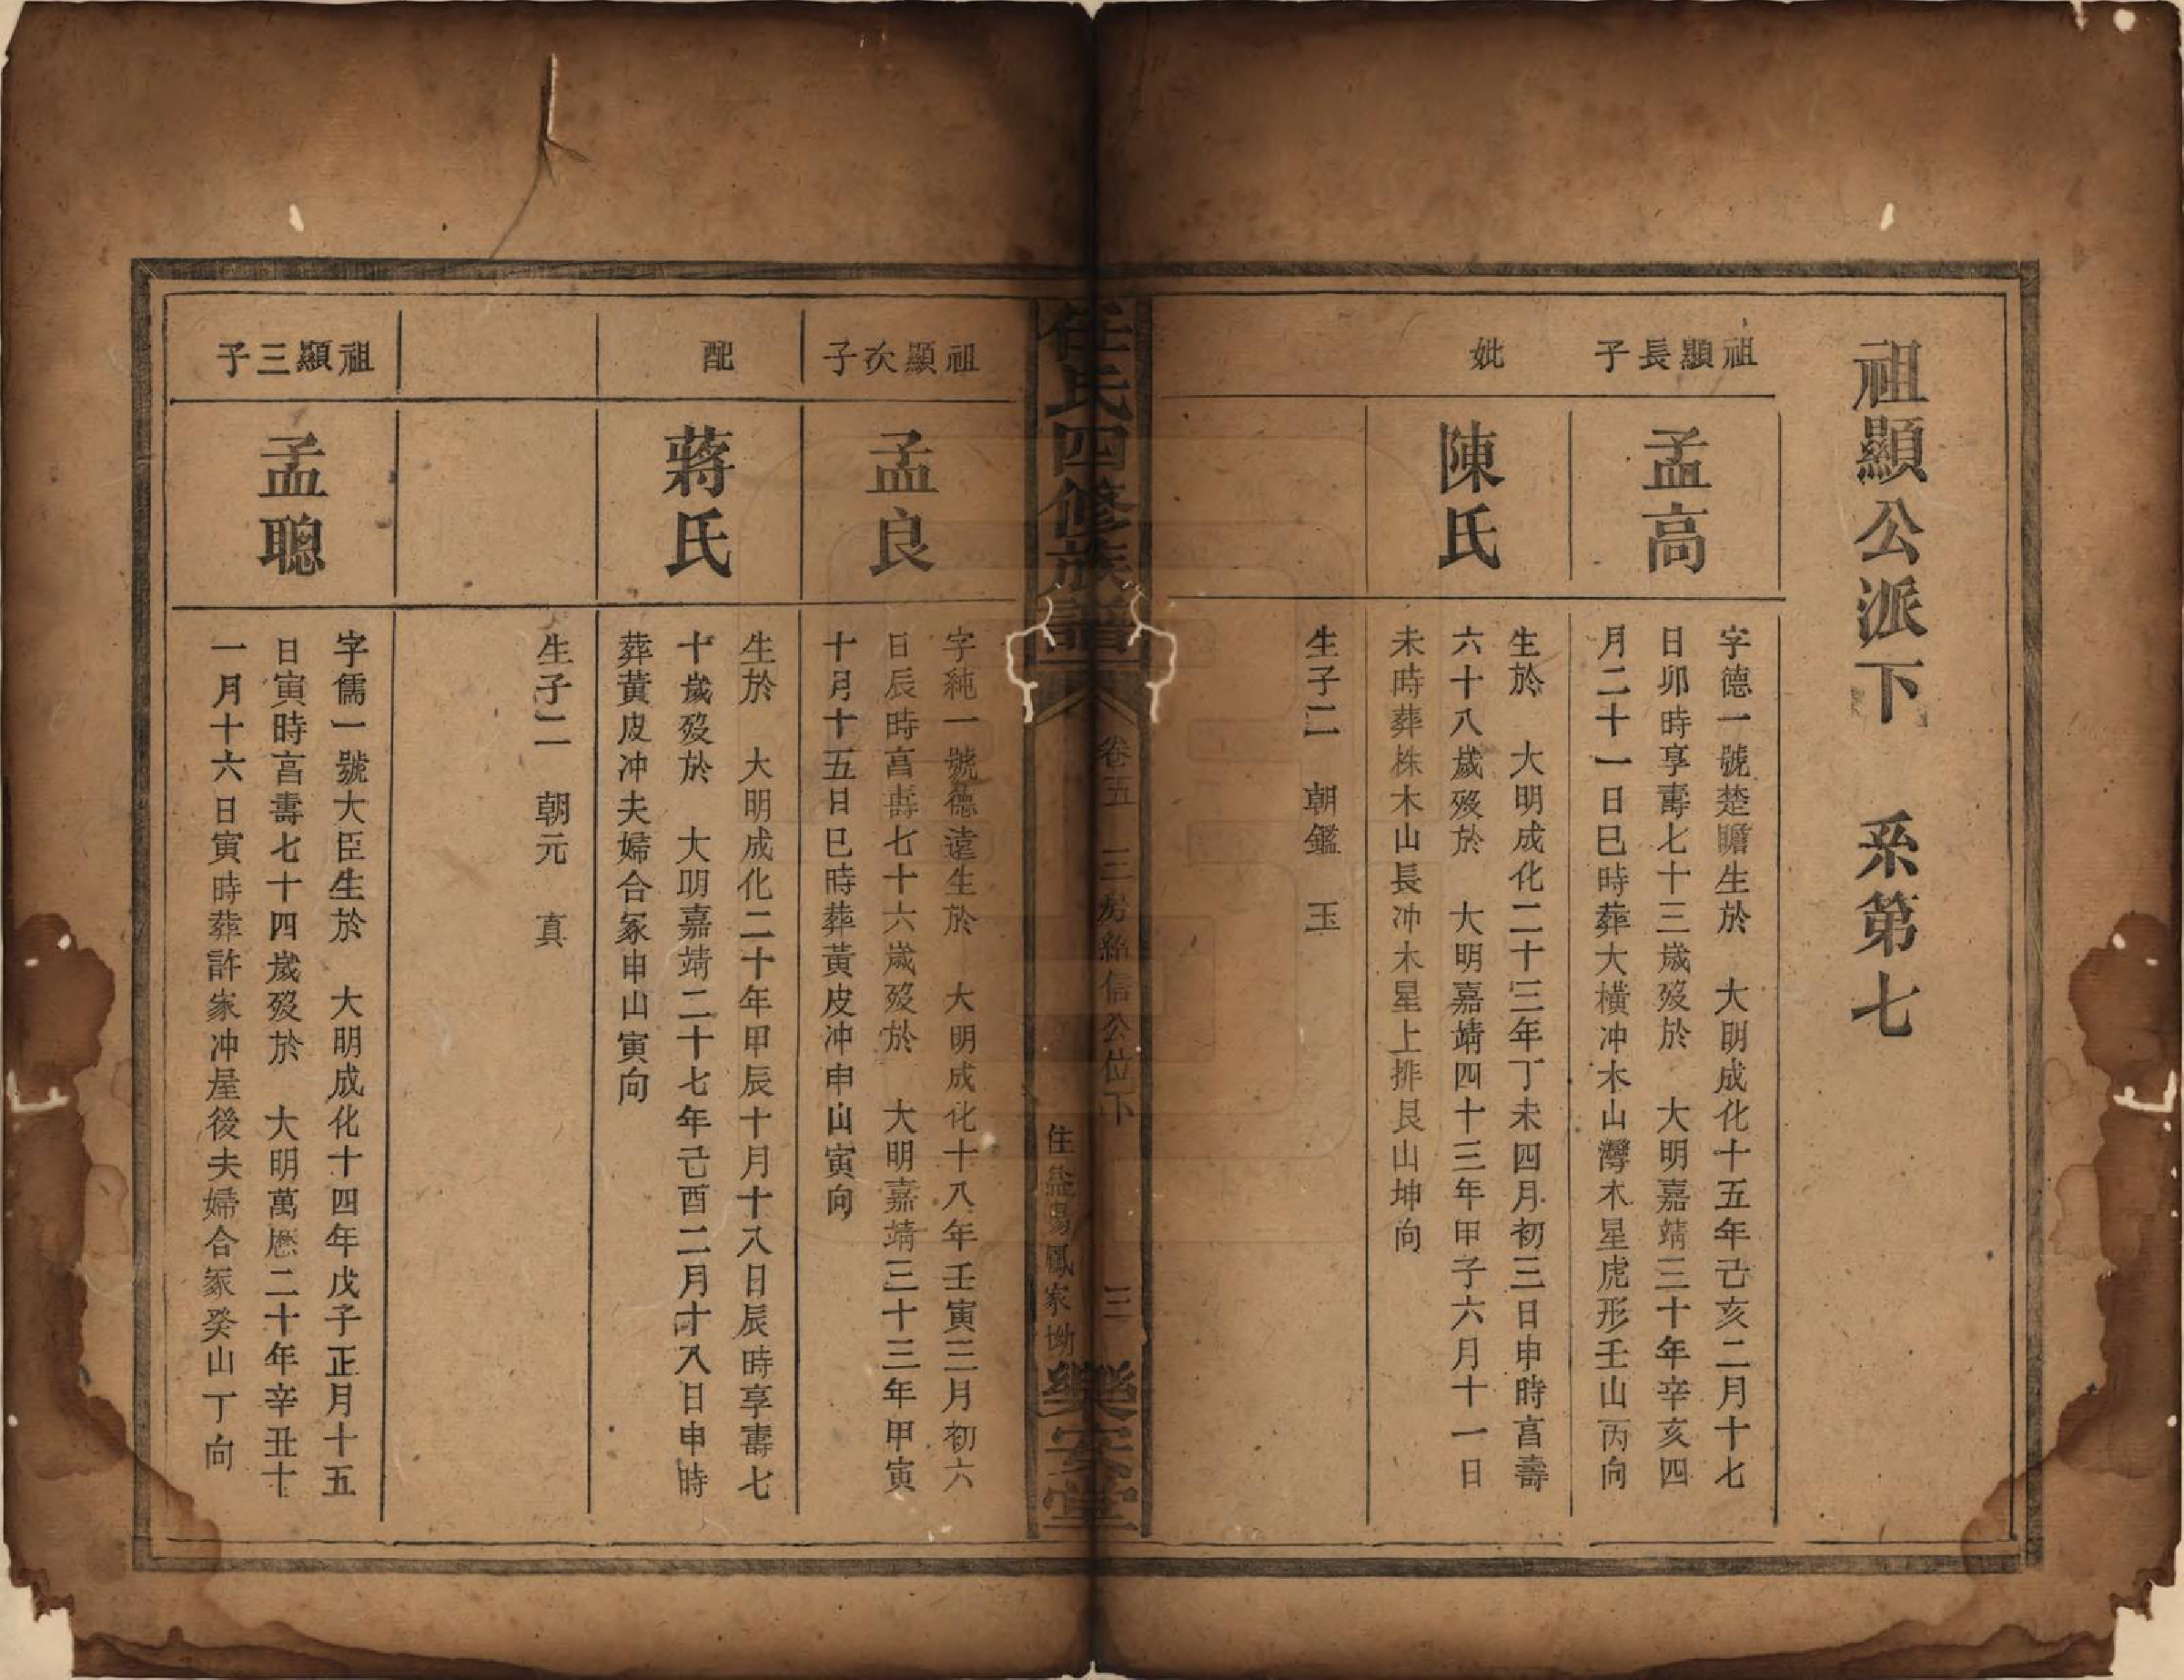 祖顯公派下　系第七
祖顯長子
孟高
字德一號楚瞻生於　大明成化十五年己亥二月十七
日卯時享壽七十三歲歿於　大明嘉靖三十年辛亥四
月二十一日巳時葬大橫冲木山灣木星虎形壬山丙向
妣
陳氏
生於　大明成化二十三年丁未四月初三日申時亯壽
六十八歲歿於　大明嘉靖四十三年甲子六月十一日
未時葬株木山長冲木星上排艮山坤向
生子二　朝鑑　玉
任氏四修族譜
卷五　三房　信公位下
三
住益陽鳳家坳
樂安堂
祖顯次子
孟良
字純一號德遠生於　大明成化十八年壬寅三月初六
日辰時亯壽七十六歲歿於　大明嘉靖三十三年甲寅
十月十五日巳時葬黃皮冲申山寅向
配
蔣氏
生於　大明成化二十年甲辰十月十八日辰時享壽七
十歲歿於　大明嘉靖二十七年己酉二月十八日申時
葬黃皮冲夫婦合冢申山寅向
生子二　朝元　真
祖顯三子
孟聰
字儒一號大臣生於　大明成化十四年戊子正月十五
日寅時亯壽七十四歲歿於　大明萬厯二十年辛丑十
一月十六日寅時葬許家冲屋後夫婦合冢癸山丁向